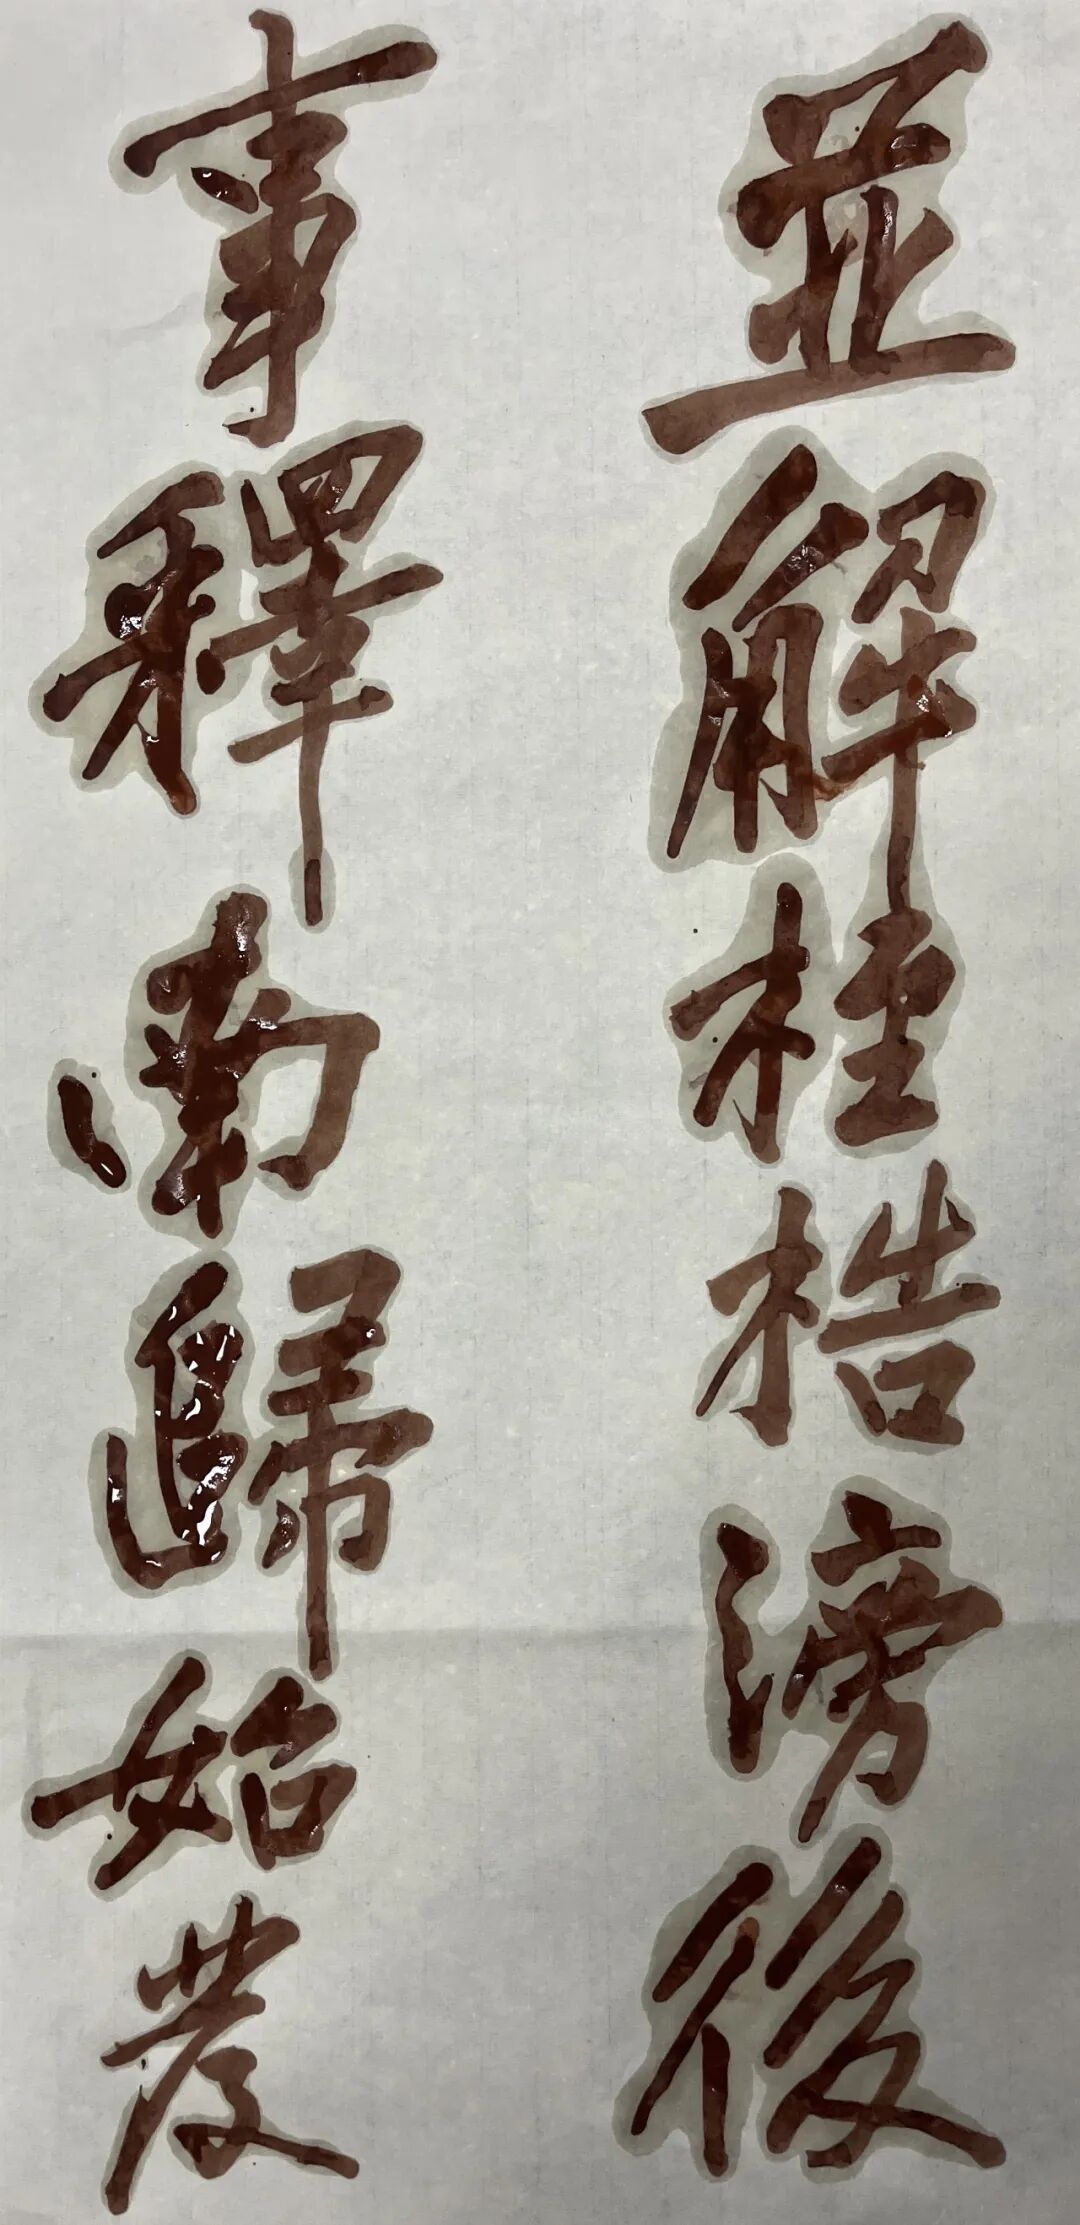 並解桎梏滂後
事釋南歸始發